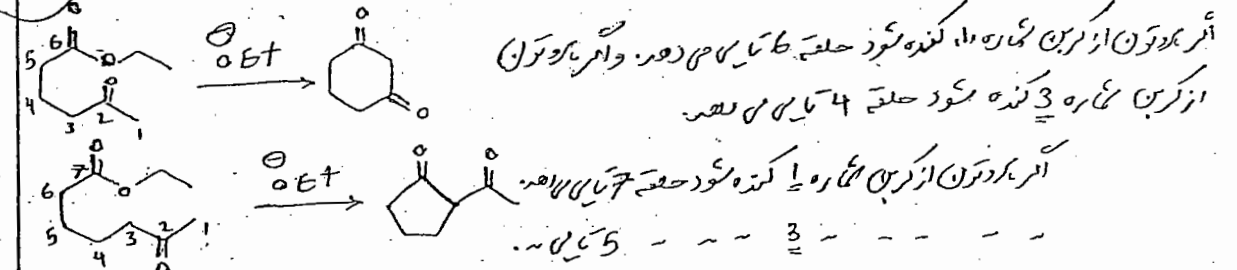 اگر پروتون از کربن شماره 1 کنده شود حلقه 6 تایی می دهد. و اگر پروتون
از کربن شماره 3 کنده شود حلقه 4 تایی می دهد.
O 6 5 O 4 O 3 2 1 ⊖OEt O O
اگر پروتون از کربن شماره 1 کنده شود حلقه 7 تایی می دهد.
3 5 تایی
O 7 6 O 5 4 3 2 1 O ⊖OEt O O